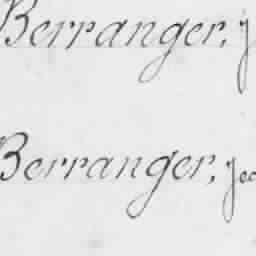 Berranger,
Berranger,